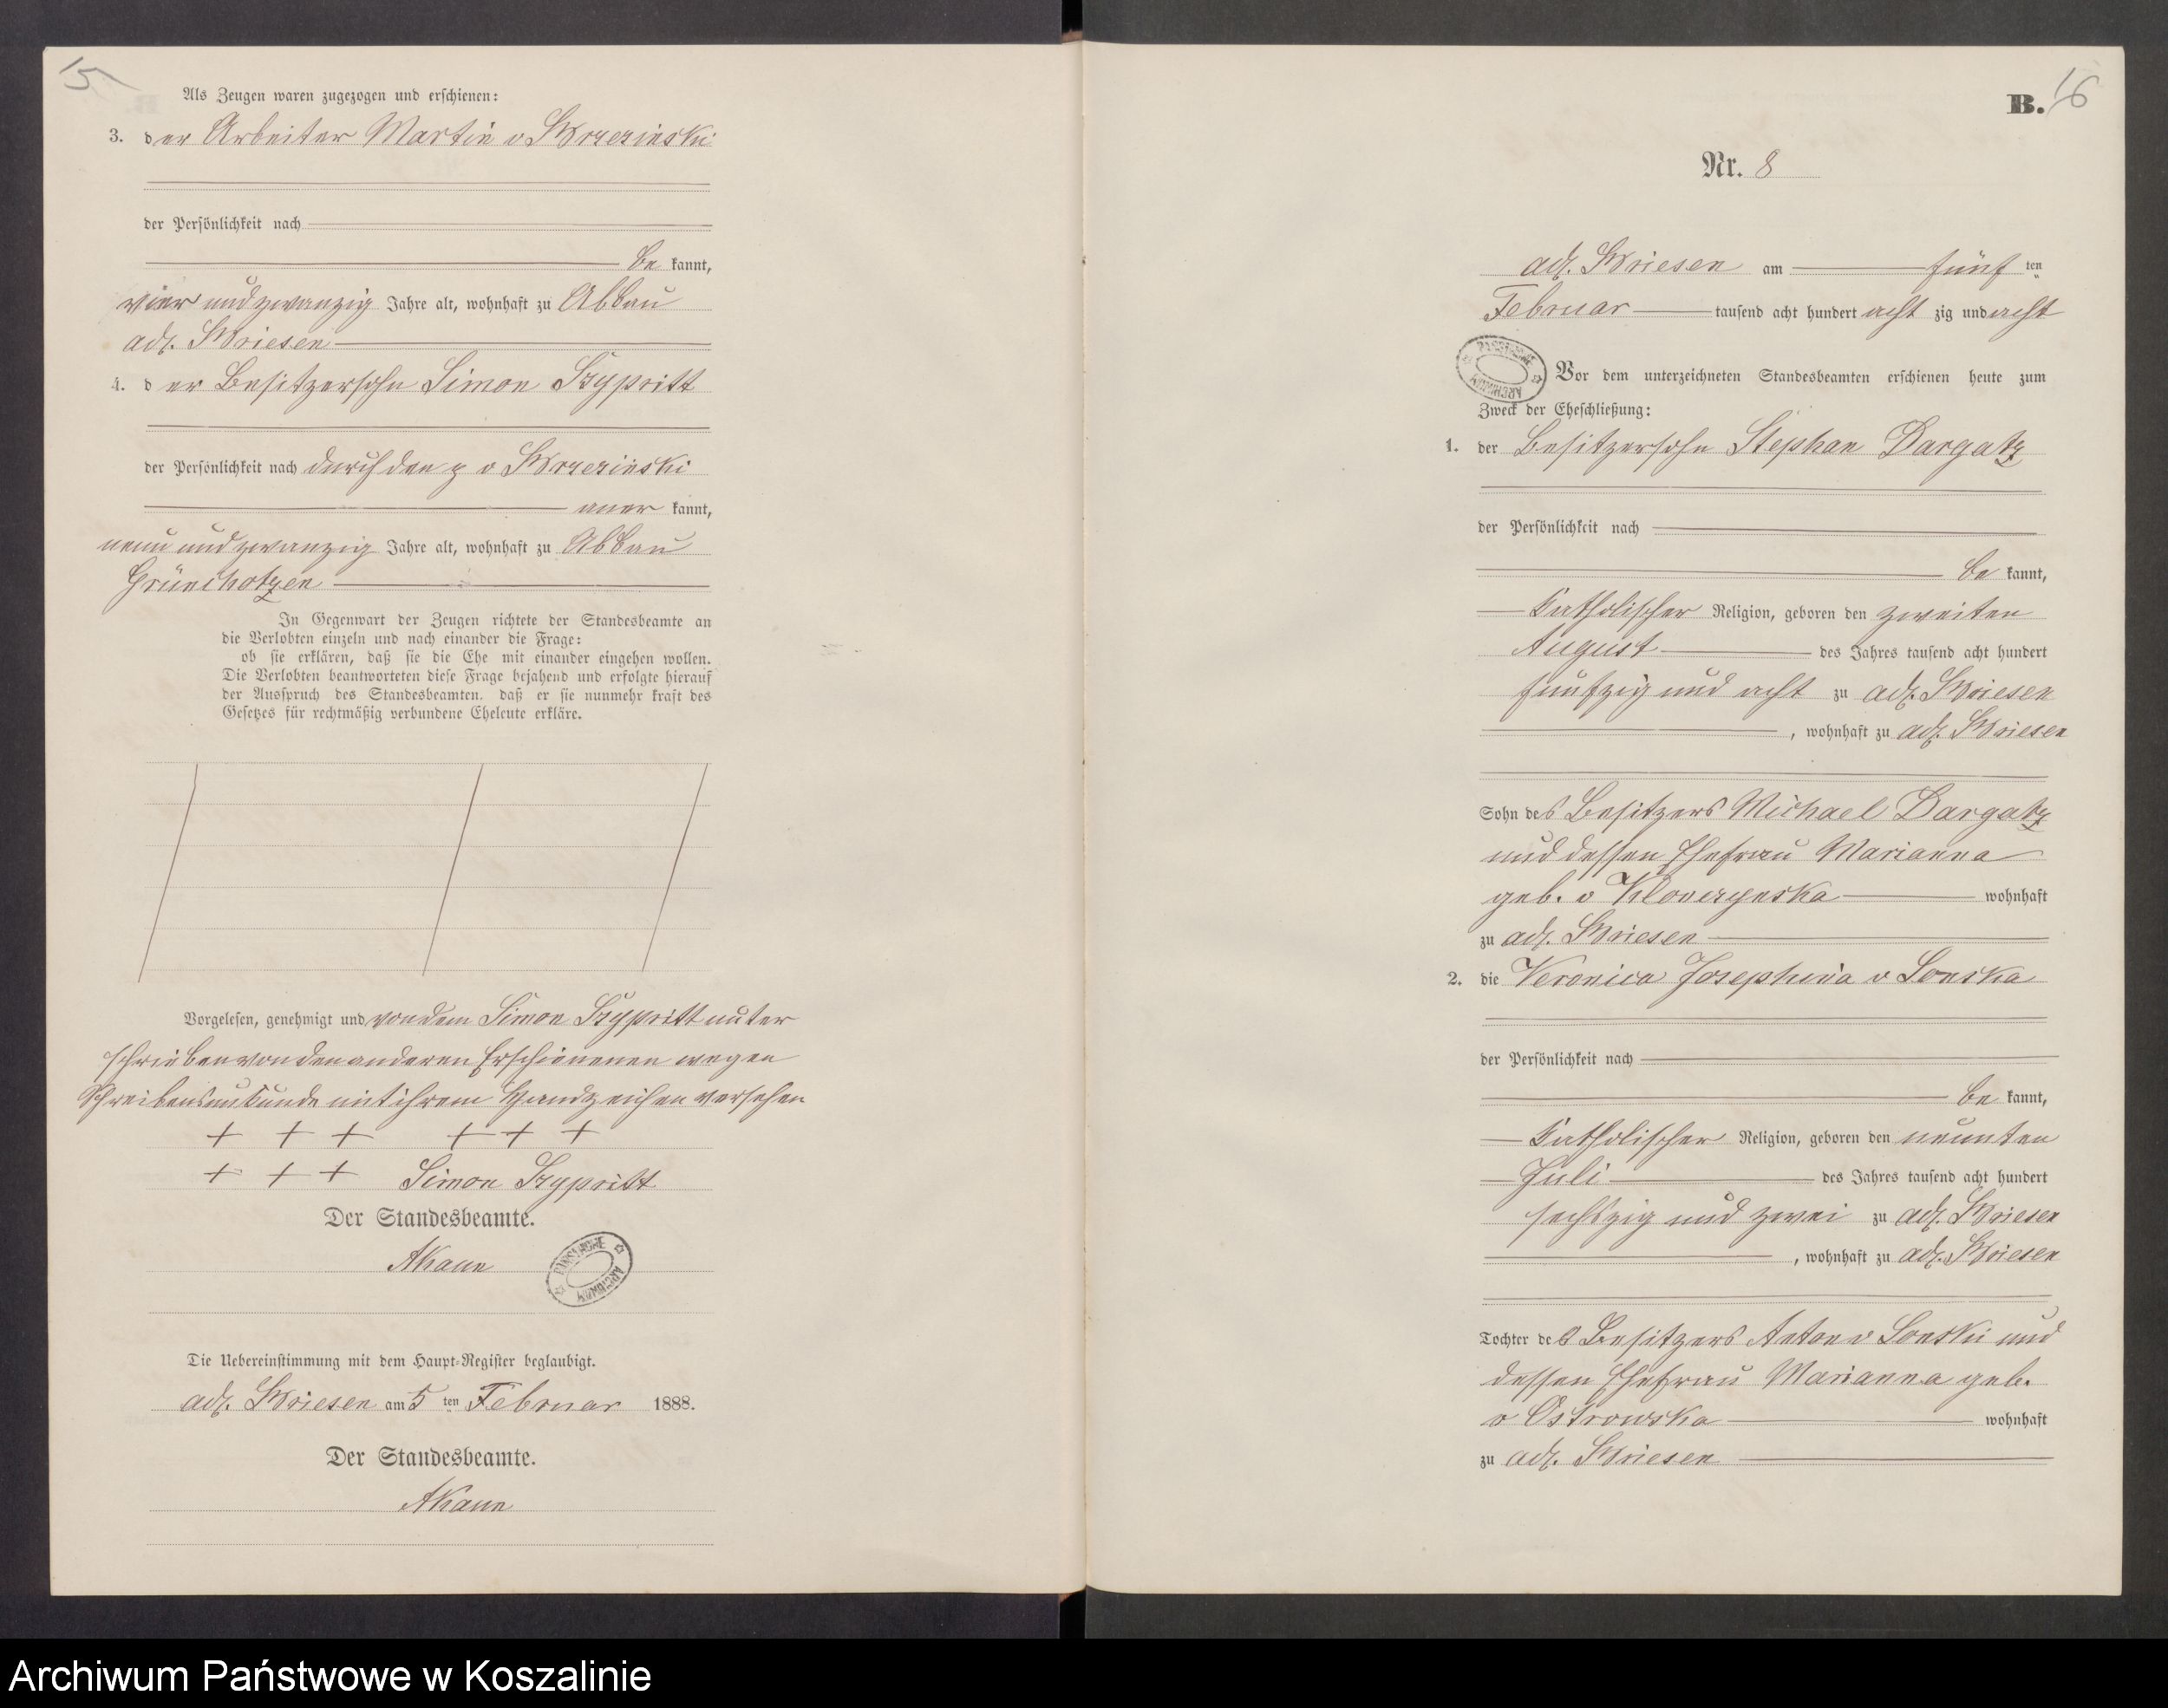 15
Als Zeugen waren zugezogen und erschienen:
3. der Arbeiter Martin v Wrzezinski
der Persönlichkeit nach
be kannt,
vier und zwanzig Jahre alt, wohnhaft zu Abbau
adl. Briesen
4. der Besitzersohn Simon Szypritt
der Persönlichkeit nach durch den p v Wrzezinski
aner kannt,
neun und zwanzig Jahre alt, wohnhaft zu Abbau
Grünchotzen
In Gegenwart der Zeugen richtete der Standesbeamte an
die Verlobten einzeln und nach einander die Frage:
ob sie erklären, daß sie die Ehe mit einander eingehen wollen.
Die Verlobten beantworteten diese Frage bejahend und erfolgte hierauf
der Ausspruch des Standesbeamten, daß er sie nunmehr kraft des
Gesetzes für rechtmäßig verbundene Eheleute erkläre.
Vorgelesen, genehmigt und von dem Simon Szypritt unter
schrieben von den anderen Erschienenen wegen
Schreibensunkunde mit ihrem Handzeichen versehen
+ + + + + +
+ + + Simon Szypritt
Der Standesbeamte.
AKann
Die Uebereinstimmung mit dem Haupt-Register beglaubigt.
adl. Briesen am 5 ten Februar 1888.
Der Standesbeamte.
AKann
B. 16
Nr. 8
adl. Briesen am fünf ten
Februar tausend acht hundert acht zig und acht
Vor dem unterzeichneten Standesbeamten erschienen heute zum
Zweck der Eheschließung:
1. der Besitzersohn Stephan Dargatz
der Persönlichkeit nach
be kannt,
katholischer Religion, geboren den zweiten
August des Jahres tausend acht hundert
fünfzig und acht zu adl. Briesen
, wohnhaft zu adl. Briesen
Sohn des Besitzers Michael Dargatz
und dessen Ehefrau Marianna
geb. v wohnhaft
zu adl. Briesen
2. die Veronica Josephina v Lonska
der Persönlichkeit nach
be kannt,
katholischer Religion, geboren den neunten
Juli des Jahres tausend acht hundert
sechszig und zwei zu adl. Briesen
, wohnhaft zu adl. Briesen
Tochter des Besitzers Anton v Lonski und
dessen Ehefrau Marianna geb.
v Ostrowska wohnhaft
zu adl. Briesen
Archiwum Państwowe w Koszalinie